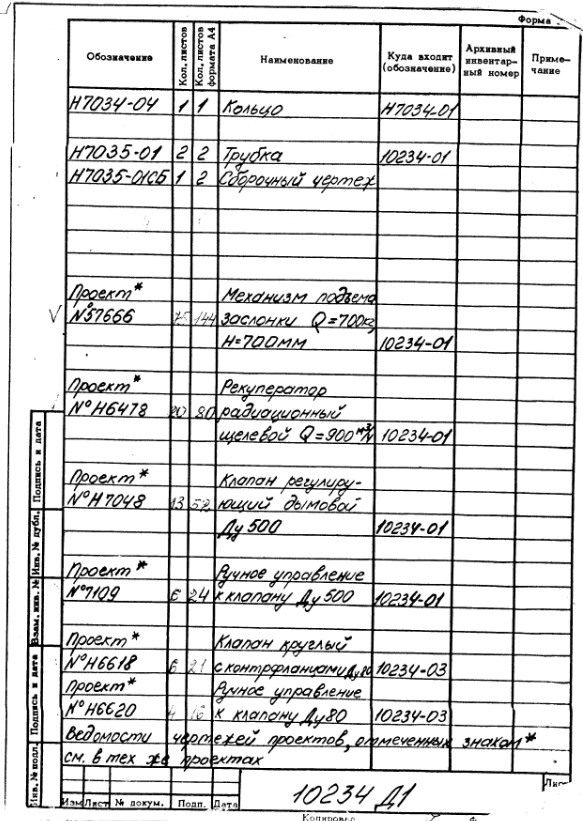 Форма
Обозначение Кол. листов Кол. листов формата А4 Наименование Куда входит (обозначение) Архивный инвентар-ный номер Приме-чание
Н7034-04 1 1 Кольцо Н7034-01
Н7035-01 2 2 Трубка 10234-01
Н7035-01СБ 1 2 Сборочный чертеж
Проект* Механизм подъема
№57666 144 заслонки Q=700кг
Н=700мм 10234-01
Проект* Рекуператор
№Н6478 80 радиационный
щелевой Q=900 10234-01
Проект* Клапан регулиру-
№Н7048 13 52 ющий дымовой
Ду 500 10234-01
Проект* Ручное управление
№7109 6 24 к клапану Ду 500 10234-01
Проект* Клапан круглый
№Н6618 6 21 с контрфланцами Ду80 10234-03
Проект* Ручное управление
№Н6620 4 16 к клапану Ду80 10234-03
Ведомости чертежей проектов, отмеченных знаком*
см. в тех же проектах
Инв. № подл. Подпись и дата Взам. инв. № Инв. № дубл. Подпись и дата
10234 Д1
Лис
Изм Лист № докум. Подп. Дата
Копировал